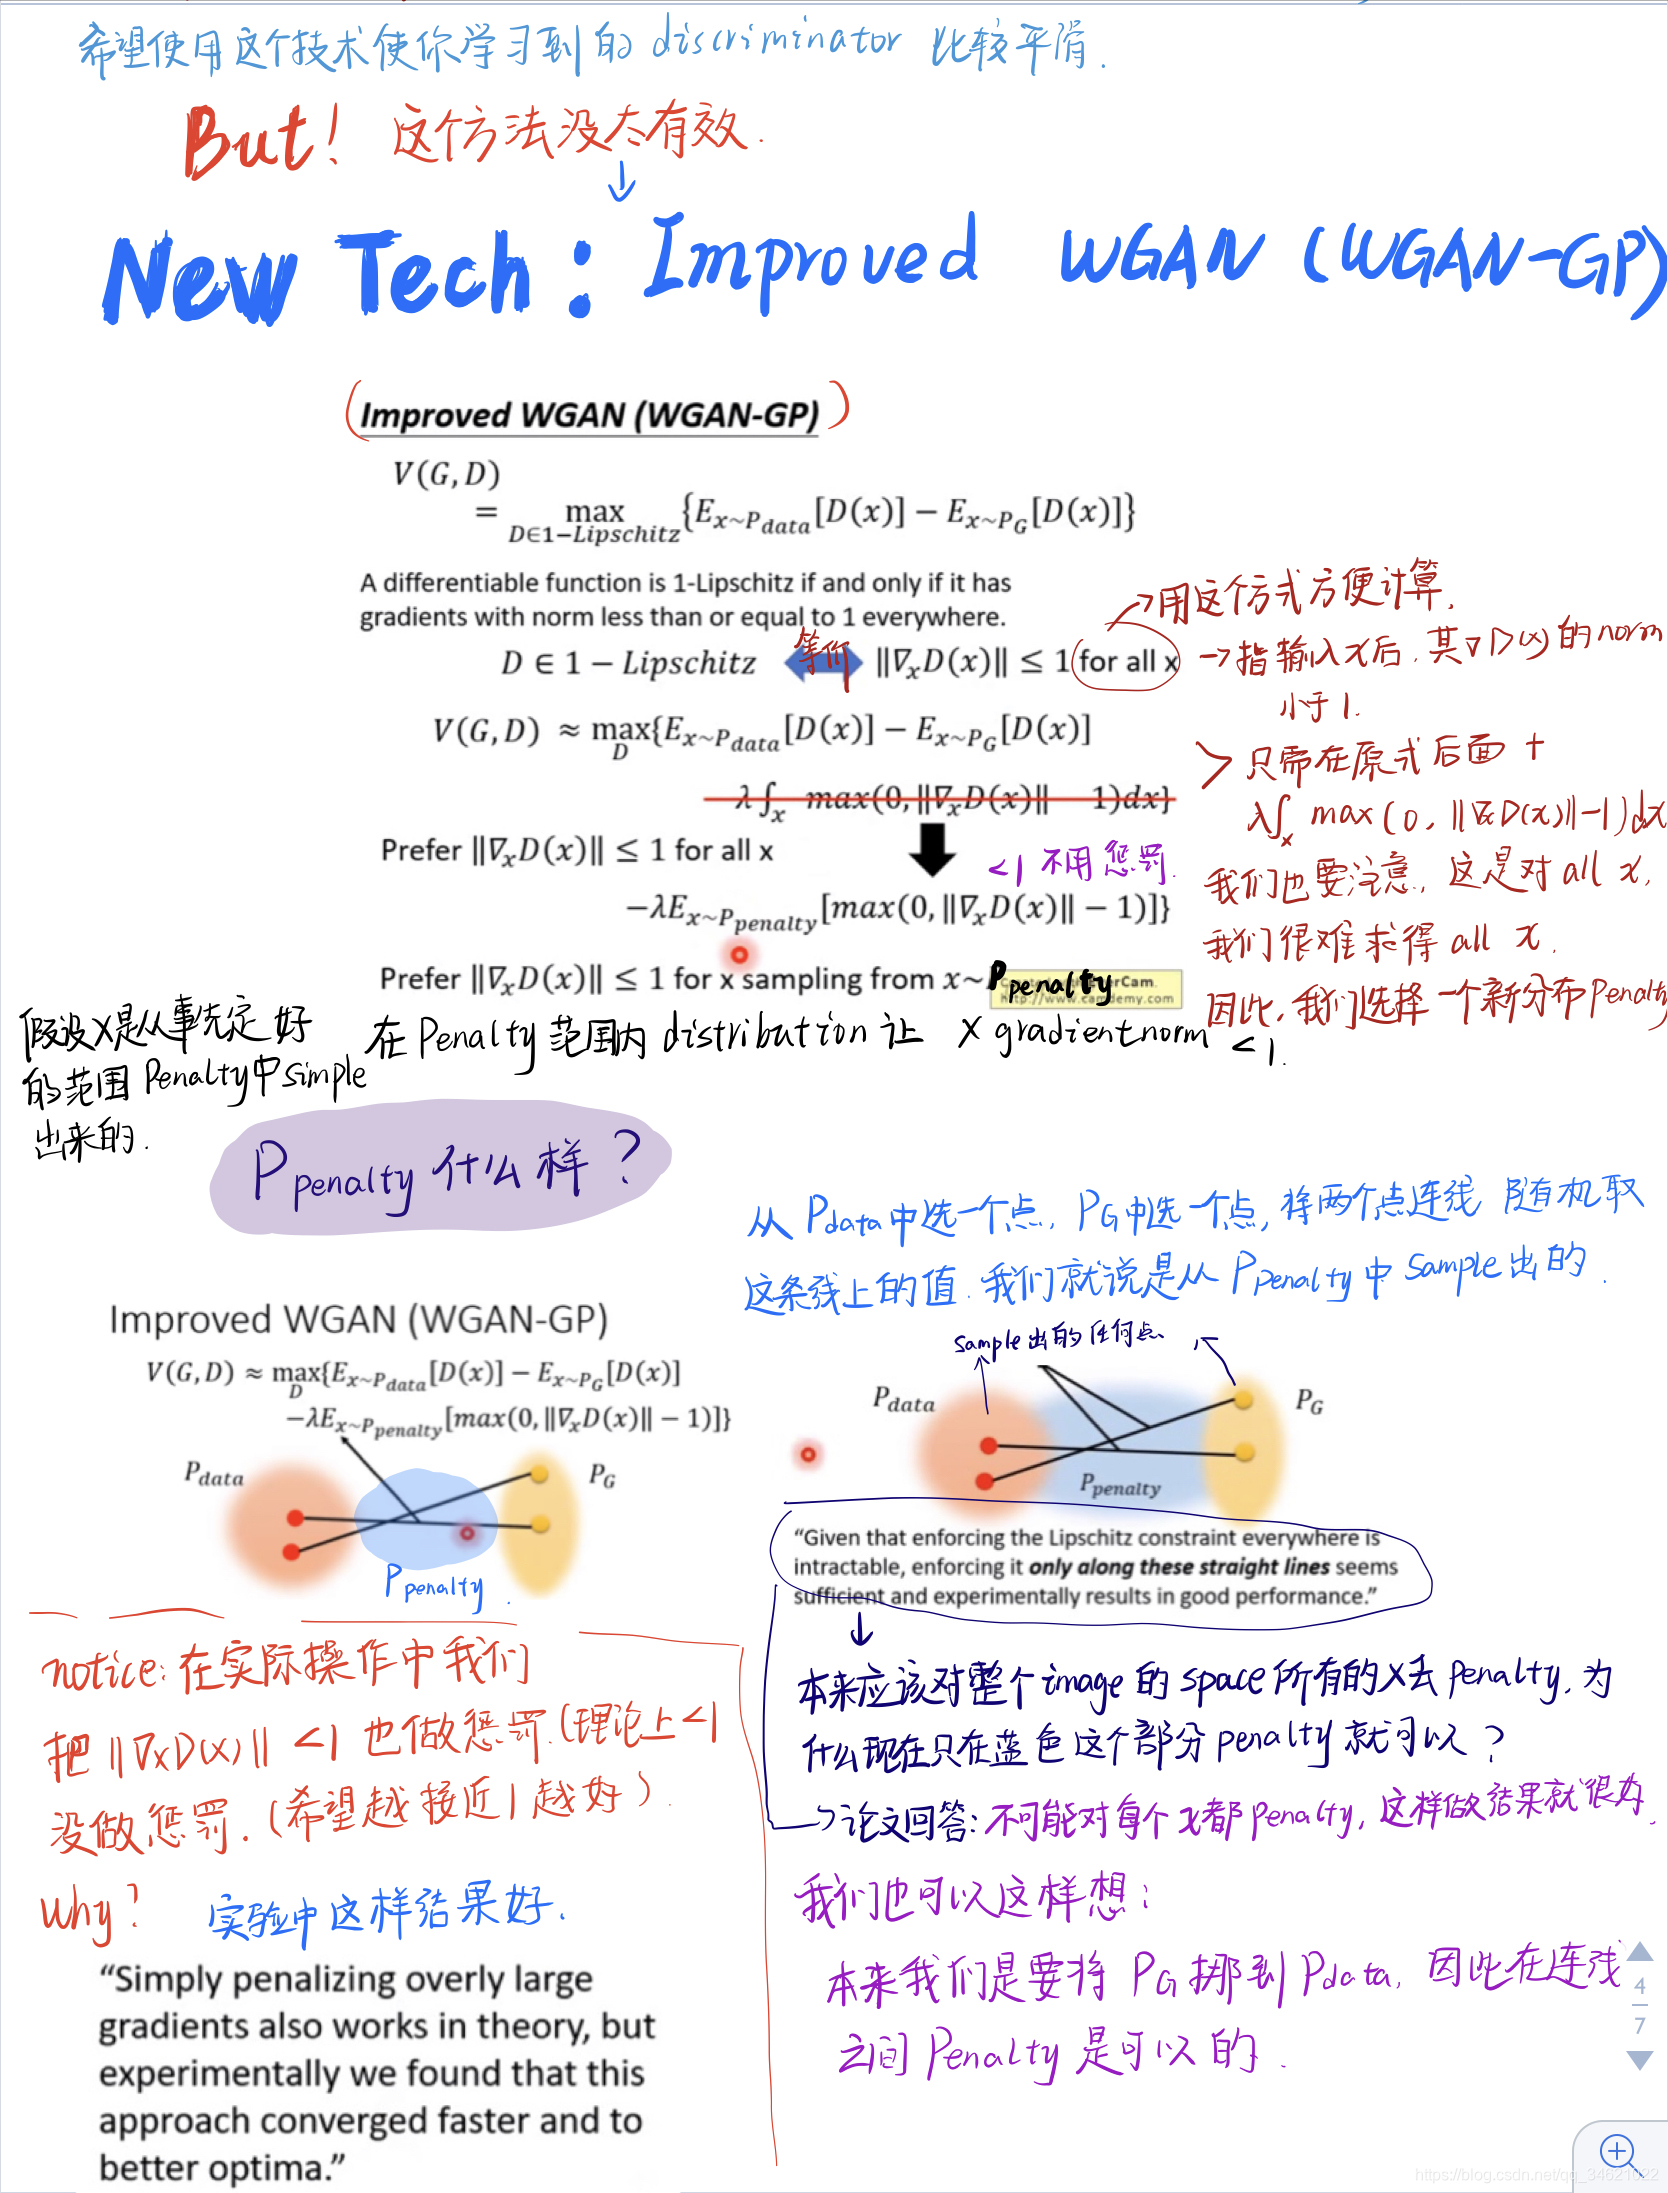 希望使用这个技术使你学习到的 discriminator 比较平滑.
But! 这个方法没太有效.
New Tech: Improved WGAN (WGAN-GP)
Improved WGAN (WGAN-GP)
V(G,D)
= max_{D∈1−Lipschitz} {E_{x~P_data}[D(x)] − E_{x~P_G}[D(x)]}
A differentiable function is 1-Lipschitz if and only if it has
gradients with norm less than or equal to 1 everywhere.
D ∈ 1 − Lipschitz 等价 ‖∇_x D(x)‖ ≤ 1 for all x
→用这个方式方便计算.
→指输入x后, 其∇D(x)的norm
小于1.
V(G,D) ≈ max_D{E_{x~P_data}[D(x)] − E_{x~P_G}[D(x)]
λ∫_x max(0,‖∇_x D(x)‖ − 1)dx}
> 只需在原式后面 +
λ∫_x max(0, ‖∇xD(x)‖-1)dx
Prefer ‖∇_x D(x)‖ ≤ 1 for all x
<1 不用惩罚.
−λE_{x~P_penalty}[max(0,‖∇_x D(x)‖ − 1)]}
我们也要注意, 这是对 all x,
我们很难求得 all x.
因此, 我们选择一个新分布Penalty
Prefer ‖∇_x D(x)‖ ≤ 1 for x sampling from x~P_penalty
http://www.camdemy.com
假设X是从事先定好
的范围 Penalty中simple
出来的.
在 Penalty 范围内 distribution 让 X gradient norm <1.
P_penalty 什么样?
从 P_data中选一个点, P_G中选一个点, 将两个点连线 随机取
这条线上的值. 我们就说是从 P_penalty 中 Sample 出的.
Improved WGAN (WGAN-GP)
V(G,D) ≈ max_D{E_{x~P_data}[D(x)] − E_{x~P_G}[D(x)]
−λE_{x~P_penalty}[max(0,‖∇_x D(x)‖ − 1)]}
P_data
P_G
P_penalty.
sample出的任何点
P_data
P_G
P_penalty
“Given that enforcing the Lipschitz constraint everywhere is
intractable, enforcing it only along these straight lines seems
sufficient and experimentally results in good performance.”
notice: 在实际操作中我们
把 ‖∇xD(x)‖ <1 也做惩罚.(理论上<1
没做惩罚. (希望越接近1越好).
Why? 实验中这样结果好.
“Simply penalizing overly large
gradients also works in theory, but
experimentally we found that this
approach converged faster and to
better optima.”
本来应该对整个image的space所有的X去penalty, 为
什么现在只在蓝色这个部分penalty就可以?
→论文回答: 不可能对每个x都penalty, 这样做结果就很好.
我们也可以这样想:
本来我们是要将 P_G 挪到 P_data, 因此在连线
之间 Penalty 是可以的.
4
7
https://blog.csdn.net/qq_34621022